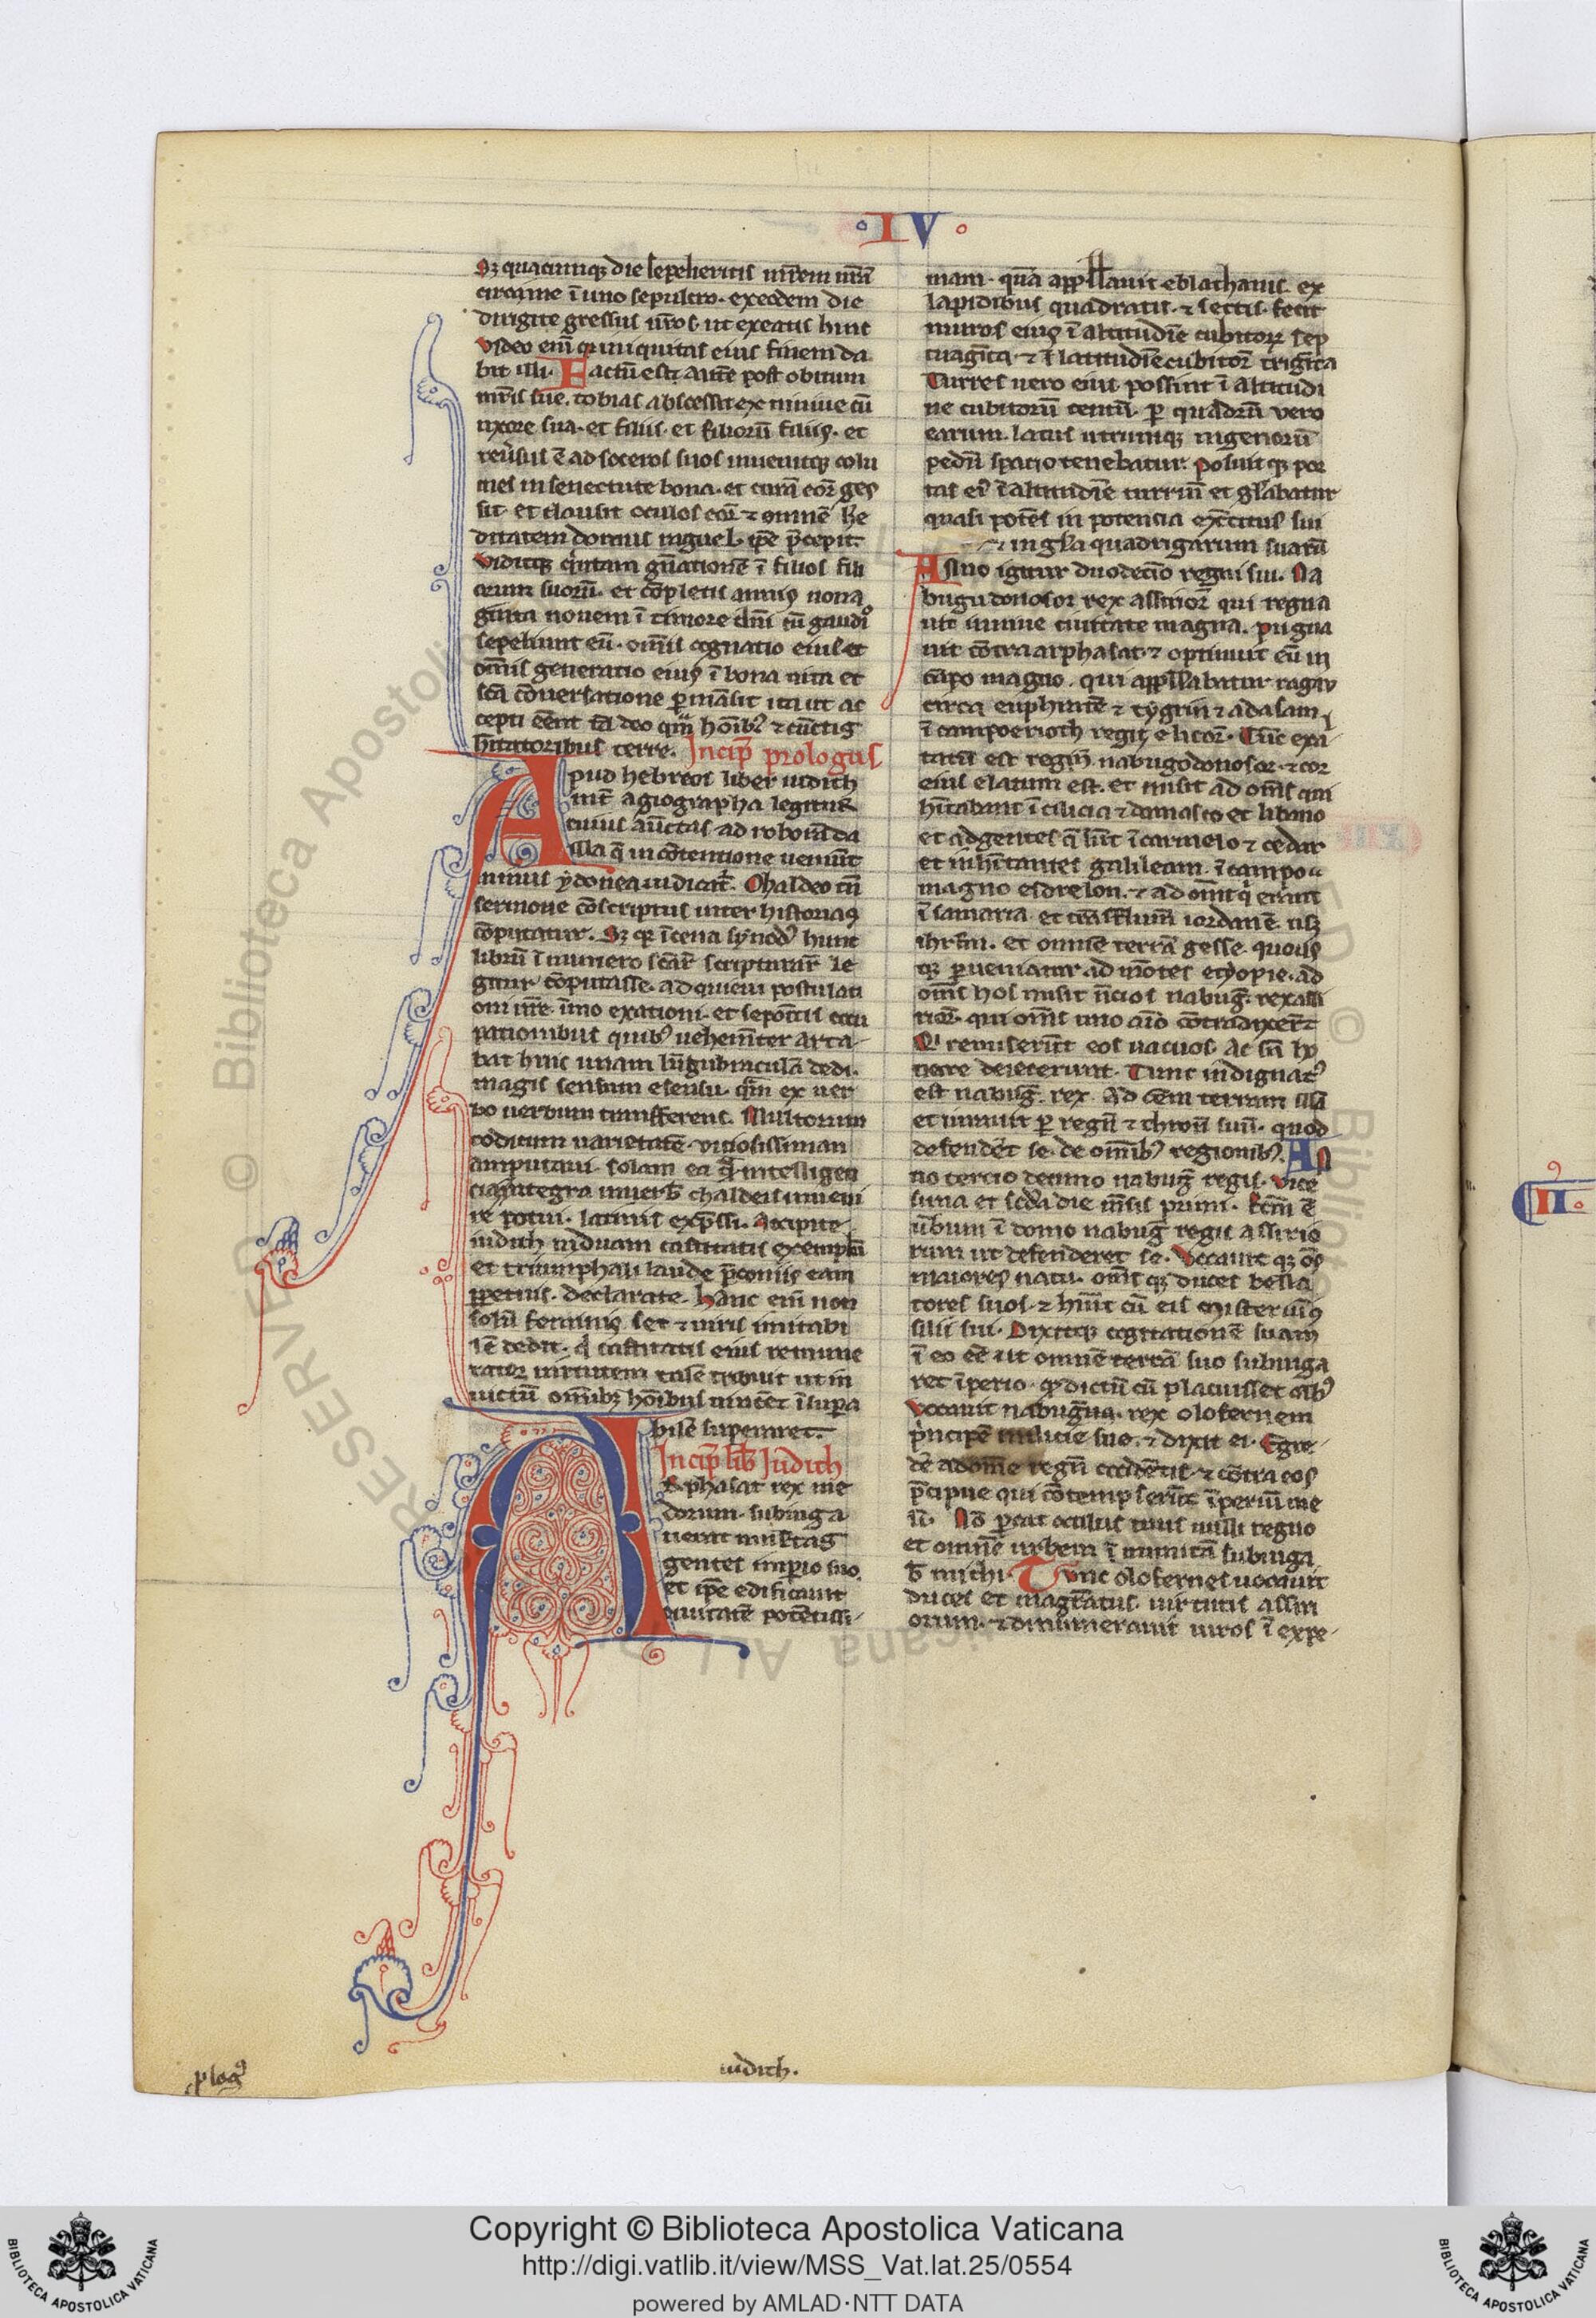 · I V ·
Sꝫ quacumqꝫ die sepelieritis mr̄em ur̄am
circa me ī uno sepulcro. ex eodem die
dirigite gressus ur̄os. ut exeatis hinc
video eni᷒ quia iniquitas eius finem da
bit illi. Factū est autē post obitum
mr̄is sue. tobias abscessit ex niniue cū
uxore sua. et filiis. et filiorū filiis. et
reuersus ē ad soceros suos inuenitqꝫ colu
mes in senectute bona. et curā eoꝝ ges
sit. et clausit oculos eoꝝ ⁊ omnē he
ditatem domus raguel. ip̄e p̄cepit.
viditqꝫ quintam gn̄ationē ī filios fili
orum suorū. et cōpletis annis nona
ginta nouem ī timore dn̄i cū gaudio
sepelierunt eū. omīs cognatio eius et
om̄is generatio eius ī bona uita et
sc̄a cōuersatione ꝑmāsit ita ut ac
cepti eēnt tā deo qm̄ hoībꝰ ⁊ cūctis
hītatoribus terre. Incip̄ prologus
Apud hebreos liber iudith
int̄ agiographa legitur
cuius auctitas ad roborāda
illa q̄ in cōtentione ueniūt
minus ydonea iudicat᷑. Chaldeo tn̄
sermone cōscriptus inter historias
cōputatur. Sꝫ qꝛ ī cena synodꝰ hunc
librū ī numero sc̄aꝝ scripturaꝝ le
gitur cōputasse. adquieui postulati
oni ur̄e. īmo exationi. et sepositis occu
pationibus quibꝰ uehemēter arta-
bar huic unam lucubraciuncula dedi.
magis sensum e sensu. qm̄ ex uer
bo uerbum transferens. Multorum
codicum uarietatē uiciosissimam
amputaui. solam ea q̄ intelligen
cia integra in uerbis chaldeis inueni
re potui. latinis exp̄ssi. Accipite
iudith uiduam castitatis exemplū
et triumphali laude p̄coniis eam
ꝑpetuis. declarate. Hanc enī non
solū feminis set ⁊ uiris imitabi
lē dedit. q castitatis eius remune
rator uirtutem talē tribuit ut in
uictū omībꝫ hoībus uincēt īsupa
bilē superaret.
Incip̄ lib̄ Judith
Arphasat rex me
dorum. subiuga
uerat multas
gentes imperio suo
et ip̄e edificauit
ciuitatē potentissi-
mam. quā appellauit eblathanis. ex
lapidibus quadratis. ⁊ sectis. fecit
muros eius ī altitudīe cubitoꝝ sep
tuagīta. ⁊ ī latitudīe cubitoꝝ trigīta
Turres uero eius possuit ī altitudi
ne cubitorū centū. ꝑ quadrū vero
earum. latus utrumqꝫ uigenorū
pedū spacio tenebatur. Posuit qꝫ por
tas eiꝰ ī altitudīe turriū et gl̄abatur
quasi potēs in potencia exc̄itus sui
⁊ in gl̄a quadrigarum suarū
Anno igitur duodecīo regni sui. Na
bugudonosor rex assirioꝝ qui regna
uit niniue ciuitate magna. pugna
uit cōtra arphasat. ⁊ optinuit eū in
cāpo magno. qui appellabatur ragau
circa euphratē ⁊ tygrin ⁊ adasam
ī campo erioth regis elicoꝝ. Tūc exa
tatū est regnū nabugodonosor. ⁊ cor
eius elatum est. et misit ad om̄s qui
hītabant ī cilicia ⁊ damasco et libano
et ad gentes q̄ sūt ī carmelo ⁊ cedar
et inhītantes galileam. ī campo
magno esdrelon. ⁊ ad om̄s qui erant
ī samaria. et trās flumē iordanē. usqꝫ
ihrl̄m. et omnē terrā gesse. quous
qꝫ ꝑueniatur ad mōtes ethyopie. ad
om̄s hos misit nūcios nabuḡ. rex assi
rioꝝ. qui om̄s uno aīo cōtradixer̄t
Et remiserūt eos uacuos. Ac sn̄ ho
nore deiecerunt. Tunc indignatꝰ
est nabuḡ. rex. Ad oēm terram illā
et iurauit ꝑ regnū ⁊ thronū suū. quod
defendēt se de omībꝰ regionibꝰ. An
no tercio decimo nabuḡ regis. vice
sima et scd̄a die mēsis primi. fctm̄ ē
uerbum ī domo nabuḡ regis assirio
rum ut defenderet se. Vocauit qꝫ oēs
maiores natu. om̄s qꝫ duces bella
tores suos. ⁊ habuit cū eis misteriū 9
silii sui. Dixitqꝫ cogitationē suam
ī eo eē ut omnē terrā suo subiuga
ret īperio. qd dictū cū placuisset oībꝰ
vocauit nabuḡ. rex olofernem
pⁱncipē milicie sue. ⁊ dixit ei. Egre
dē ad om̄e regn̄ occidētis. ⁊ cōtra eos
p̄cipue qui cōtempserūt īperiū me
ū. Nō parcat oculus tuus ulli regno
et omnē urbem ī munitā subiuga
b̄ michi. Tunc olofernes uocauit
duces et magr̄atus uirtutis assiri
orum. ⁊ dinumerauit uiros ī expe-
II.
ꝓlogꝰ
iudith.
© Biblioteca Apostolica Vaticana ALL RIGHTS RESERVED
Copyright © Biblioteca Apostolica Vaticana
http://digi.vatlib.it/view/MSS_Vat.lat.25/0554
powered by AMLAD·NTT DATA
BIBLIOTECA APOSTOLICA VATICANA
BIBLIOTECA APOSTOLICA VATICANA